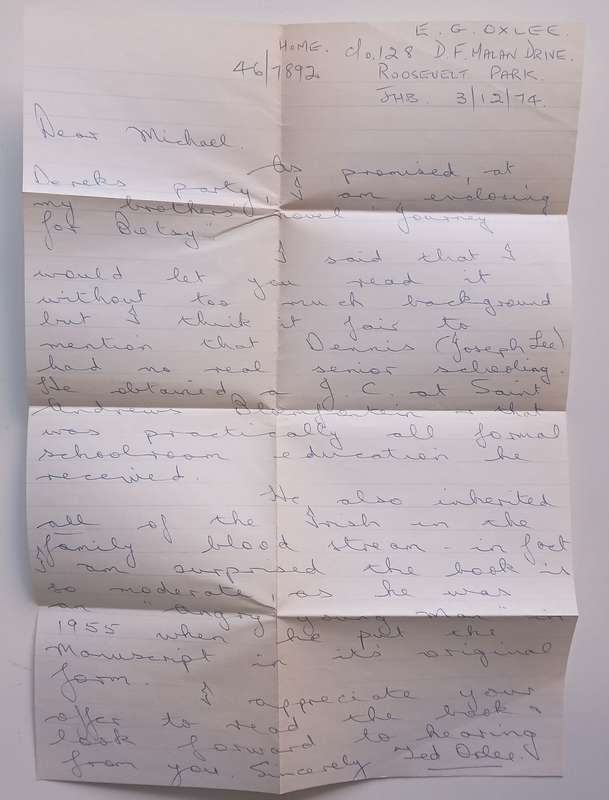 E. G. OXLEE.
HOME. c/o, 128 D. F. MALAN DRIVE.
46/7892 ROOSEVELT PARK.
JHB. 3/12/74.
Dear Michael.
As promised, at
Dereks party, I am enclosing
my brothers' novel "Journey
for Betsy".
I said that I
would let you read it
without too much background
but I think it fair to
mention that Dennis (Joseph Lee)
had no real senior schooling.
He obtained a J. C. at Saint
Andrews Bloemfontein & that
was practically all formal
schoolroom education he
received.
He also inherited
all of the Irish in the
family blood stream - in fact
I am surprised the book is
so moderate, as he was
an "angry young man" in
1955 when he put the
Manuscript in its original
form.
I appreciate your
offer to read the book &
look forward to hearing
from you. Sincerely Ted Oxlee.